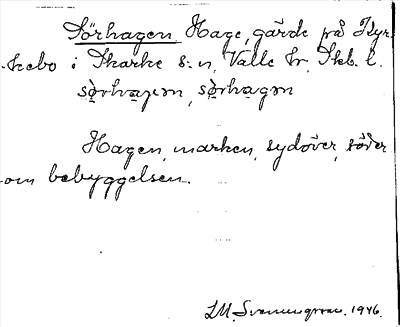 Sörhagen Hage, gärde på Dyr-
kebo i Skarke s:n, Valle hr, Skb. l.
sø̀rhaɡen, sørhaɡm
Hagen, marken, sydöver, söder
om bebyggelsen.
L M. Svanungsson. 1946.